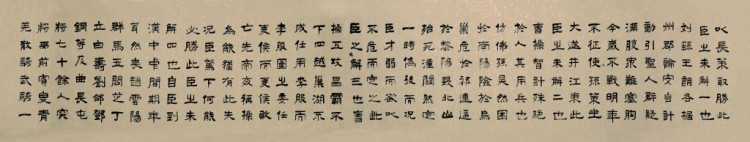 以長策取勝此
臣之未解一也
劉繇王朗各據
州郡論安言計
動引聖人群疑
滿腹眾難塞胸
今歲不戰明年
不征使孫策坐
大遂并江東此
臣之未解二也
曹操智計殊絕
於人其用兵也
仿佛孫吳然困
於南陽險於烏
巢危於祁連逼
於黎陽幾北山
殆死潼關然
一時而況
臣才弱而欲以
不危而定之此
臣之解三也曹
操五攻昌霸不
下四越巢湖不
成任用李服而
李服圖之委任
夏侯而夏侯敗
亡先帝每稱操
為能猶有此失
況臣駑下何能
必勝此臣之未
解四也自臣到
漢中中間期年
耳然喪趙雲陽
群馬玉閻芝丁
立白壽劉郃鄧
銅等及曲長屯
將七十餘人突
將無前賨叟青
羌散騎武騎一